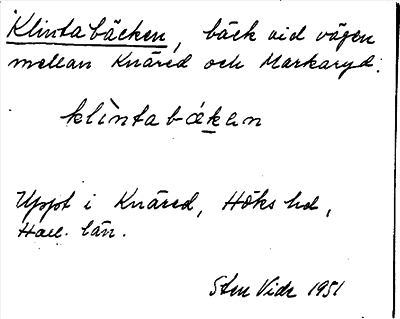 Klintabäcken, bäck vid vägen
mellan Knäred och Markaryd:
klìntabákan
Uppt i Knäred, Höks hd,
Hall. län.
Sten Vide 1951